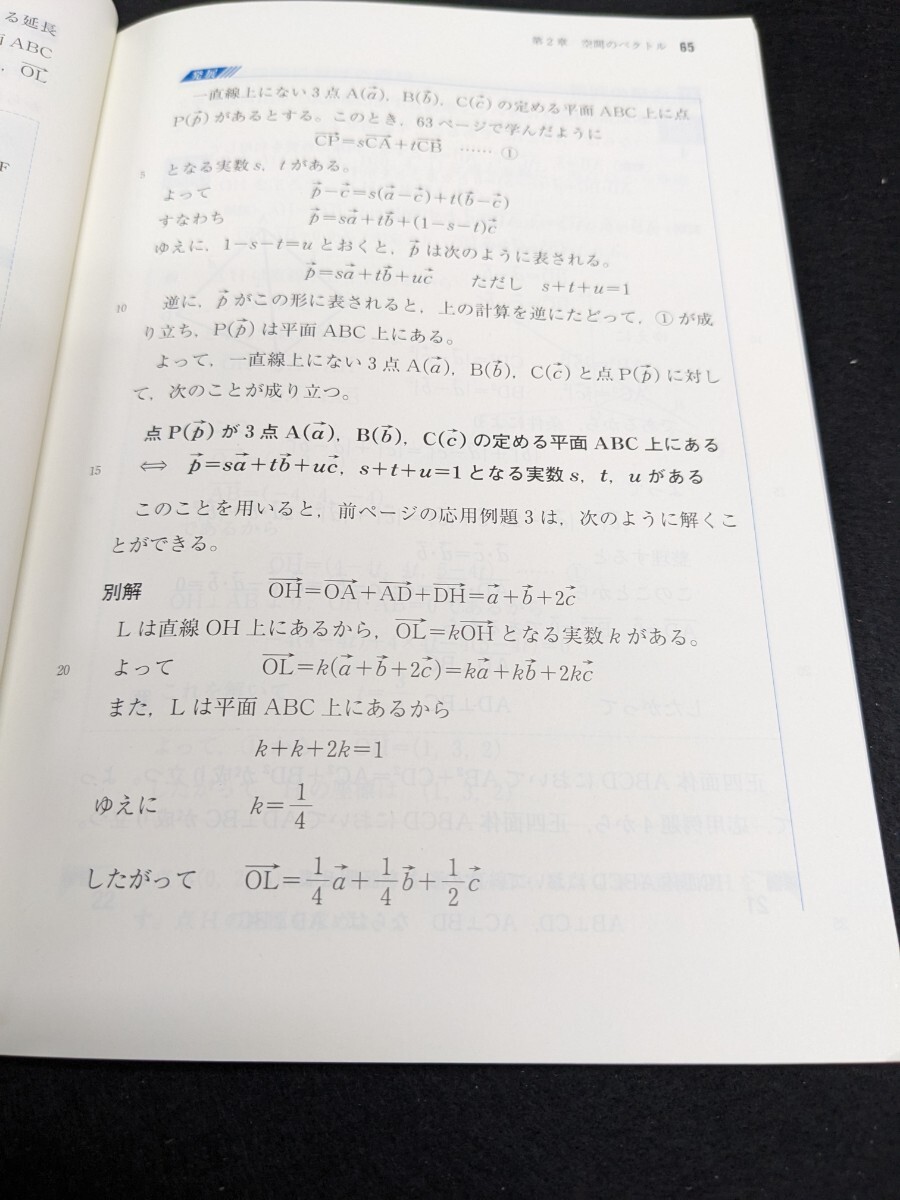 る延長
ABC
OL→
F
第2章 空間のベクトル 65
発展
一直線上にない3点A(a→), B(b→), C(c→)の定める平面ABC上に点
P(p→)があるとする。このとき, 63ページで学んだように
CP→=sCA→+tCB→ ……①
5 となる実数s, tがある。
よって p→−c→=s(a→−c→)+t(b→−c→)
すなわち p→=sa→+tb→+(1−s−t)c→
ゆえに, 1−s−t=uとおくと, p→は次のように表される。
p→=sa→+tb→+uc→ ただし s+t+u=1
10 逆に, p→がこの形に表されると, 上の計算を逆にたどって, ①が成
り立ち, P(p→)は平面ABC上にある。
よって, 一直線上にない3点A(a→), B(b→), C(c→)と点P(p→)に対し
て, 次のことが成り立つ。
点P(p→)が3点A(a→), B(b→), C(c→)の定める平面ABC上にある
15 ⟺ p→=sa→+tb→+uc→, s+t+u=1となる実数s, t, uがある
このことを用いると, 前ページの応用例題3は, 次のように解くこ
とができる。
別解 OH→=OA→+AD→+DH→=a→+b→+2c→
Lは直線OH上にあるから, OL→=kOH→となる実数kがある。
20 よって OL→=k(a→+b→+2c→)=ka→+kb→+2kc→
また, Lは平面ABC上にあるから
k+k+2k=1
ゆえに k=1/4
したがって OL→=1/4a→+1/4b→+1/2c→